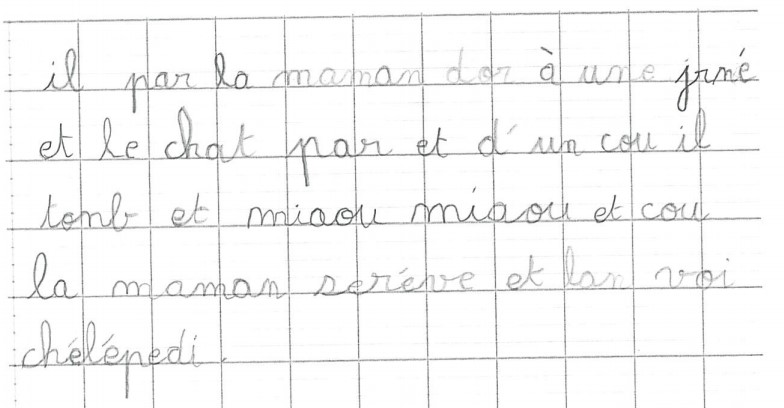 il par la maman dor à une jrné
et le chat par et d'un cou il
tonb et miaou miaou et cou
la maman seréve et lan voi
chélépedi.